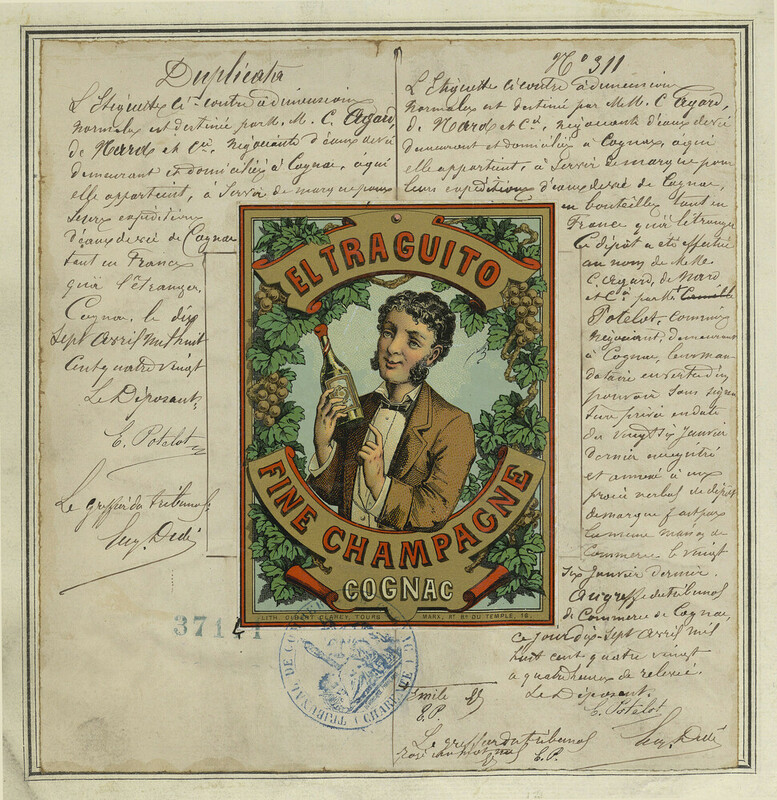 Duplicata
L'Etiquette ci-contre à dimension
normales est destiné par M. M. C. Agard,
de Nard et Cie, Négociants d'eaux de vie
demeurant et domiciliés à Cognac, à qui
elle appartient, à Servir de marque pour
leurs expéditions
d'eaux de vie de Cognac
tant en France
qu'à l'étranger.
Cognac, le dix
Sept Avril mil huit
cent quatre vingt
Le Déposant,
E. Potelot
Le greffier du tribunal
Eug. Dedé
No 311
L'Etiquette ci contre à dimension
normales est destiné par M. M. C. Agard,
de Nard et Cie, négociants d'eaux de vie
demeurant et domiciliés à Cognac, à qui
elle appartient, à Servir de marque pour
leurs expéditions d'eaux de vie de Cognac,
en bouteilles tant en
France qu'à l'étranger
Le dépôt a été effectué
au nom de MM.
C. Agard, de Nard
et Cie par M.
Potelot, commis
négociant, demeurant
à Cognac, leur man-
dataire en vertu d'un
pouvoir sous signa-
ture privée en date
du vingt six Janvier
dernier enregistré
et annexé à un
procès verbal de dépôt
de marque fait par
la même maison de
Commerce le vingt
six Janvier dernier.
Au greffe du tribunal
de Commerce de Cognac,
ce jour dix-Sept Avril mil
huit cent quatre vingt
à quatre heures de relevée.
Le Déposant.
E. Potelot
Eug. Dedé
EL TRAGUITO
FINE CHAMPAGNE
COGNAC
LITH. OLBERT CLAREY, TOURS
MARX, RT RU DU TEMPLE, 16.
371
TRIBUNAL DE
CHARENTE
Emile
E. P.
Le greffier du tribunal
E. P.